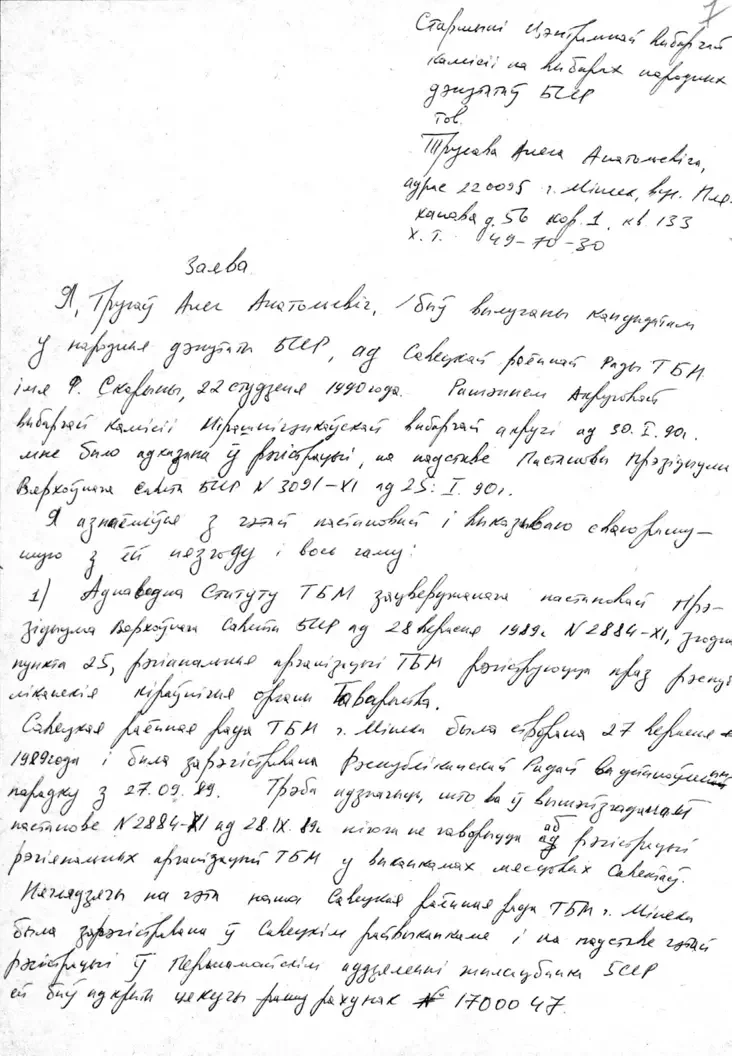 1
Старшыні Цэнтральнай выбарчай
камісіі па выбарах народных
дэпутатаў БССР
тов.
Трусава Алега Анатольевіча,
адрас 220095 г. Мінск, вул. Пля-
ханава д. 56 кор. 1, кв. 133
Х. Т. 49-70-30
Заява
Я, Трусаў Алег Анатольевіч, быў вылучаны кандыдатам
у народныя дэпутаты БССР, ад Савецкай раённай Рады ТБМ
імя Ф. Скарыны, 22 студзеня 1990 года. Рашэннем Акруговай
выбарчай камісіі выбарчай акругі ад 30.I.90г.
мне было адказана ў рэгістрацыі, на падставе Пастановы Прэзідыума
Вярхоўнага Савета БССР N 3091-XI ад 25.I.90г.
Я азнаёміўся з гэтай пастановай і выказываю сваю
з ёй нязгоду і вось чаму:
1) Адпаведна Статуту ТБМ зацверджанага пастановай Прэ-
зідыума Вярхоўнага Савета БССР ад 28 верасня 1989г N 2884-XI, згодна
пункта 25, рэгіянальныя арганізацыі ТБМ рэгіструюцца праз рэспуб
ліканскія кіраўнічыя органы Таварыства.
Савецкая раённая рада ТБМ г. Мінска была створана 27 верасня
1989года і была зарэгістравана Рэспубліканскай Радай ва устаноўленым
парадку з 27.09.89. Трэба адзначыць, што ва ў вышэйзгаданай
пастанове N 2884-XI ад 28.IX.89г нічога не гаворыцца аб рэгістрацыі
рэгіянальных арганізацый ТБМ у выканкамах мясцовых Саветаў.
Нягледзячы на гэта наша Савецкая раённая рада ТБМ г. Мінска
была зарэгістравана ў Савецкім райвыканкаме і на падставе гэтай
рэгістрацыі ў Першамайскім аддзяленні жилсацбанка БССР
ёй быў адкрыты цекучы рахунак № 1700047.